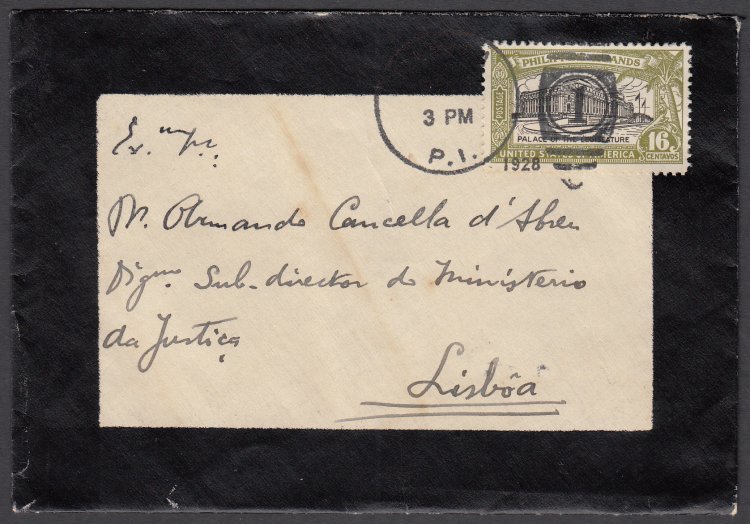 3 PM
P.I.
1928
PHILIPPINE ISLANDS
POSTAGE
1
PALACE OF THE LEGISLATURE
UNITED STATES OF AMERICA
16
CENTAVOS
Ex.mo
Armando Cancella d'Abreu
Digmo. Sub-director do Ministerio
da Justiça
Lisbôa